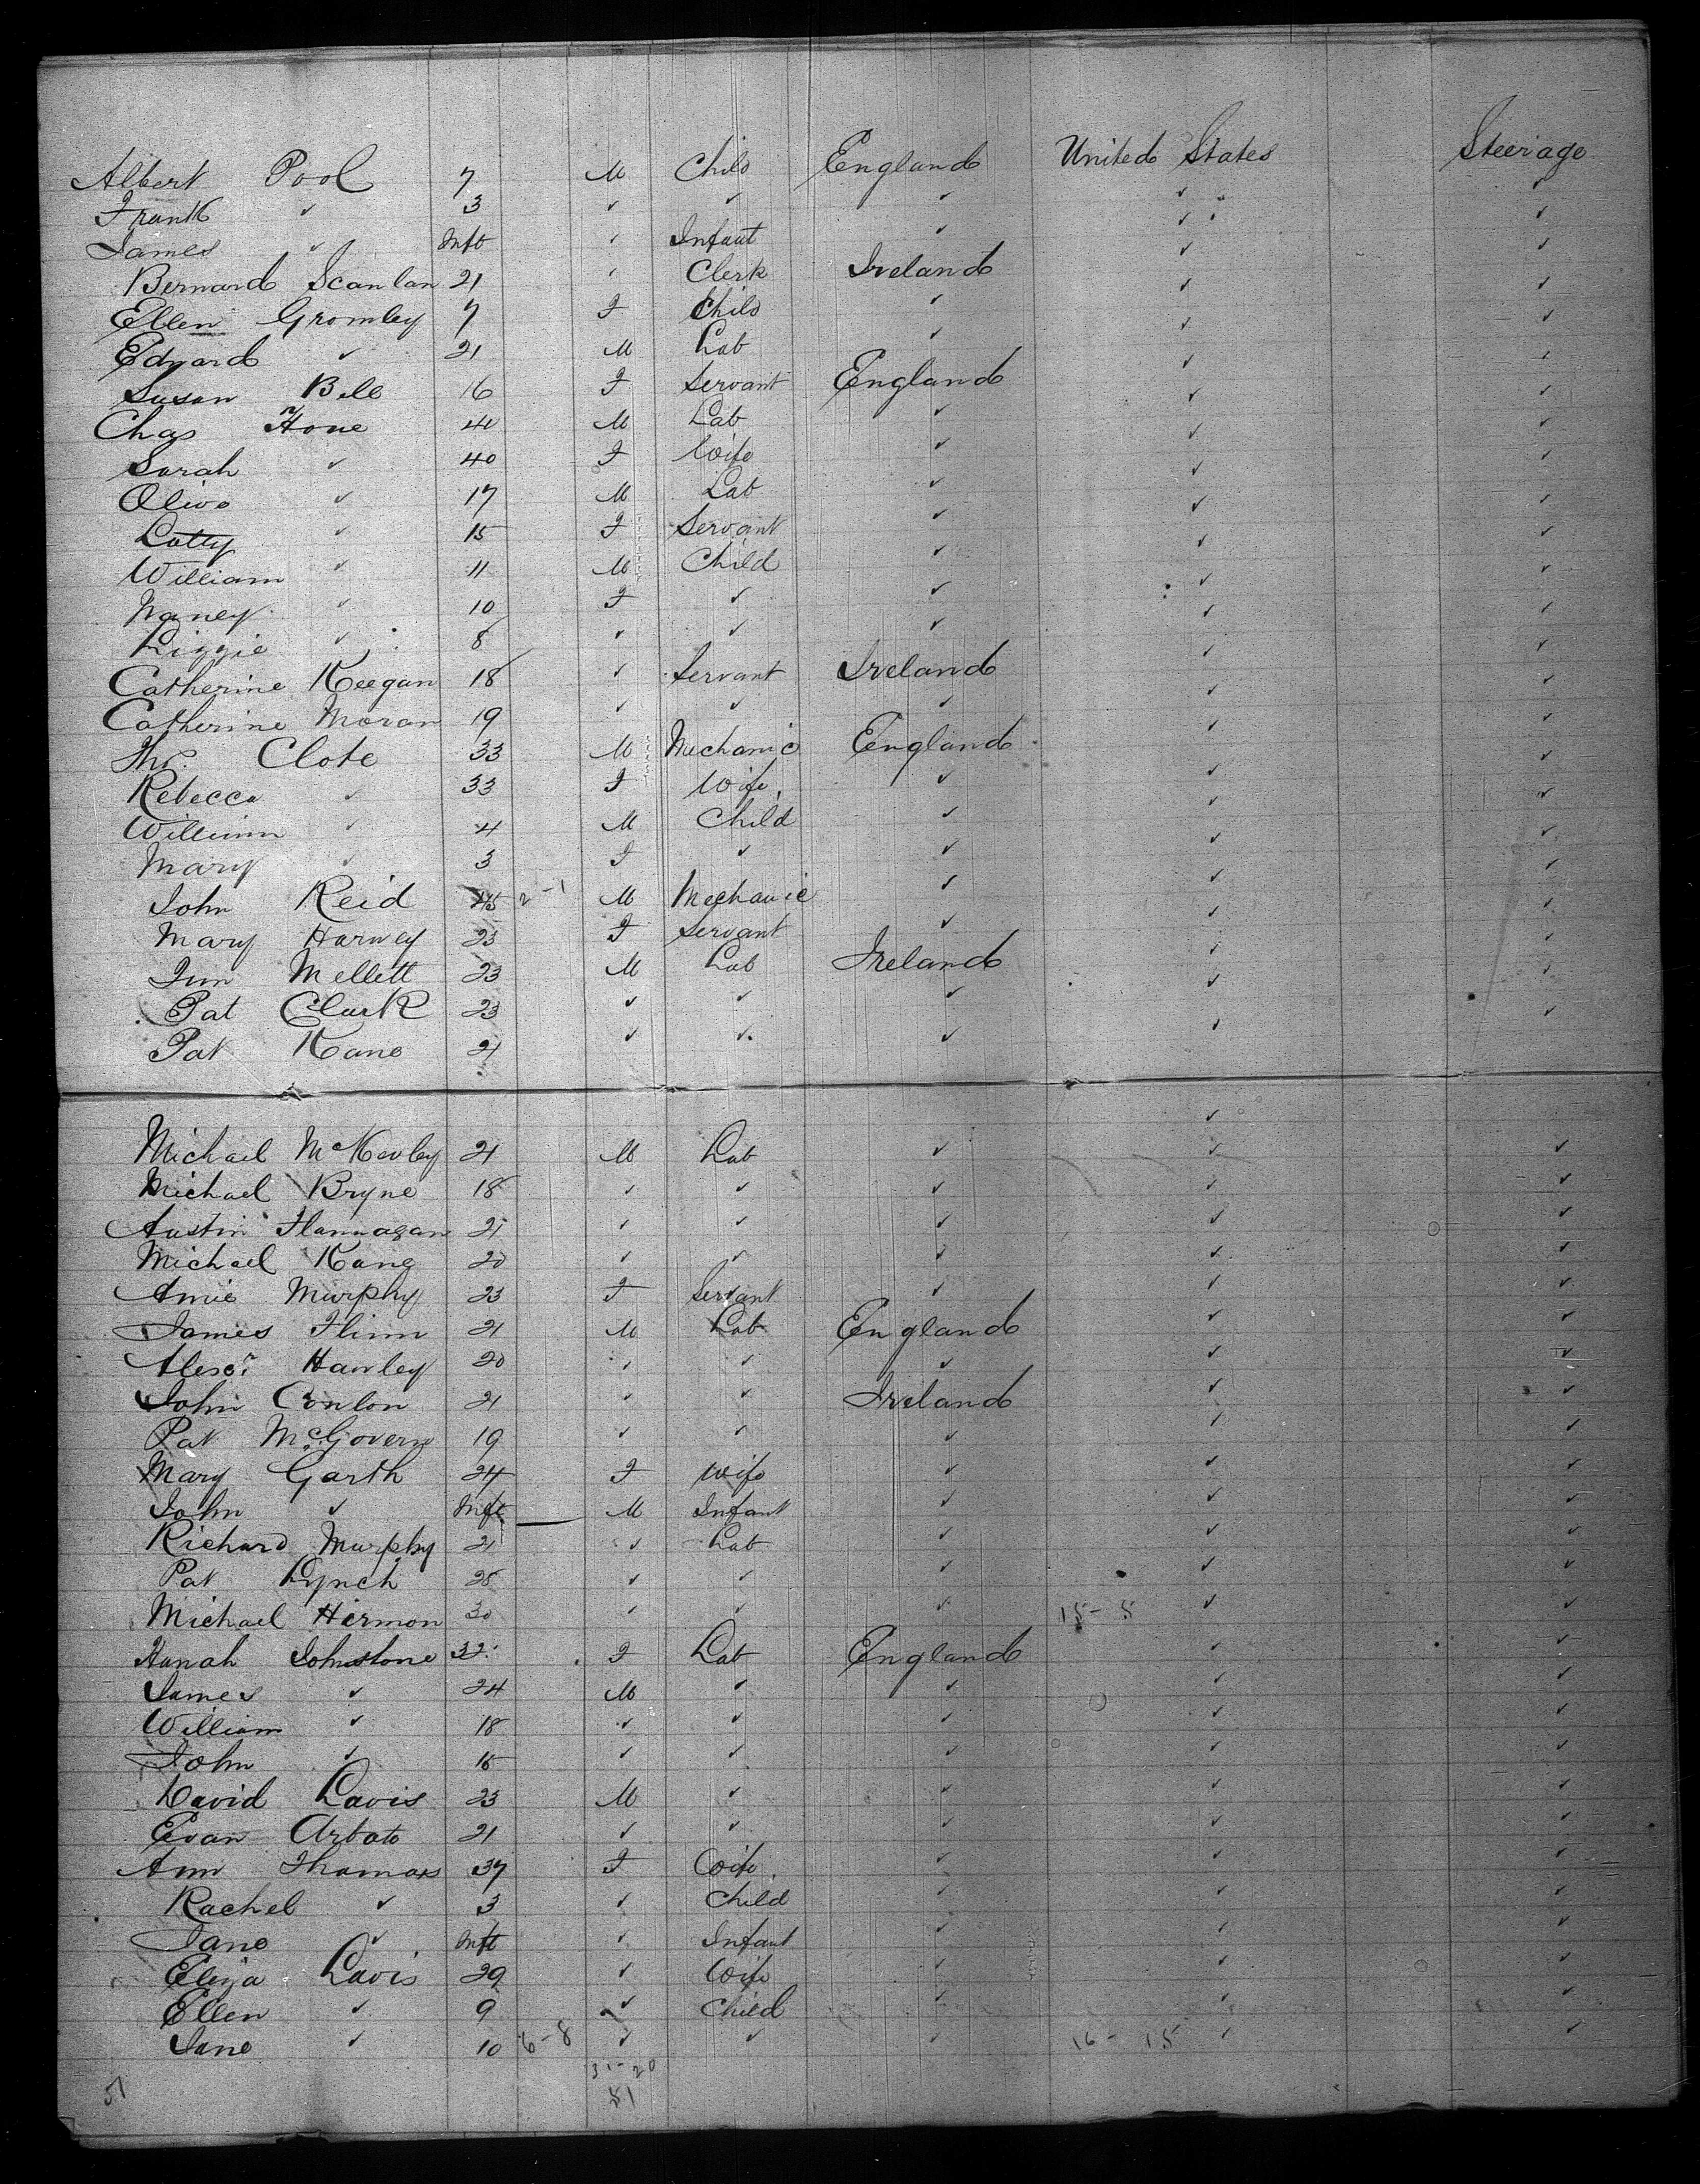 Albert Pool 7 M Child England United States Steerage
Frank ✓ 3 ✓ ✓ ✓ ✓ ✓
James ✓ Inft ✓ Infant ✓ ✓ ✓
Bernard Scanlan 21 ✓ Clerk Ireland ✓ ✓
Ellen Gromley 7 F Child ✓ ✓ ✓
Edward ✓ 21 M Lab ✓ ✓ ✓
Susan Bell 16 F Servant England ✓ ✓
Chas Hone M Lab ✓ ✓ ✓
Sarah ✓ 40 F Wife ✓ ✓ ✓
Olive ✓ 17 M Lab ✓ ✓ ✓
Lotty ✓ 15 F Servant ✓ ✓ ✓
William ✓ 11 M Child ✓ ✓ ✓
Nancy ✓ 10 F ✓ ✓ ✓ ✓
Lizzie ✓ 8 ✓ ✓ ✓ ✓ ✓
Catherine Keegan 18 ✓ Servant Ireland ✓ ✓
Catherine Moran 19 ✓ ✓ ✓ ✓ ✓
Thos. Clote 33 M Mechanic England ✓ ✓
Rebecca ✓ 33 F Wife ✓ ✓ ✓
William ✓ 4 M Child ✓ ✓ ✓
Mary ✓ 3 F ✓ ✓ ✓ ✓
John Reid 45 2-1 M Mechanic ✓ ✓ ✓
Mary Harvey 23 F Servant ✓ ✓ ✓
Jim Mellett 23 M Lab Ireland ✓ ✓
Pat Clark 23 ✓ ✓ ✓ ✓ ✓
Pat Kane 21 ✓ ✓ ✓ ✓ ✓
Michael 21 M Lab ✓ ✓ ✓
Michael Bryne 18 ✓ ✓ ✓ ✓ ✓
Austin Flannagan 21 ✓ ✓ ✓ ✓ ✓
Michael Kang 20 ✓ ✓ ✓ ✓ ✓
Amie Murphy 23 F Servant ✓ ✓ ✓
James Flinn 21 M Lab England ✓ ✓
Alexr. Hawley 20 ✓ ✓ ✓ ✓ ✓
John Conlon 21 ✓ ✓ Ireland ✓ ✓
Pat McGovern 19 ✓ ✓ ✓ ✓ ✓
Mary Garth 24 F Wife ✓ ✓ ✓
John ✓ Inft M Infant ✓ ✓ ✓
Richard Murphy 21 ✓ Lab ✓ ✓ ✓
Pat Lynch 25 ✓ ✓ ✓ ✓ ✓
Michael Hermon 30 ✓ ✓ ✓ 15-5 ✓ ✓
Hanah Johnstone 32 F Lab England ✓ ✓
James ✓ 24 M ✓ ✓ ✓ ✓
William ✓ 18 ✓ ✓ ✓ ✓ ✓
John ✓ ✓ ✓ ✓ ✓ ✓
David Davis 23 M ✓ ✓ ✓ ✓
Evan 21 ✓ ✓ ✓ ✓ ✓
Ann Thomas 37 F Wife ✓ ✓ ✓
Rachel ✓ 3 ✓ Child ✓ ✓ ✓
Jane ✓ Inft ✓ Infant ✓ ✓ ✓
Eliza Davis 29 ✓ Wife ✓ ✓ ✓
Ellen ✓ 9 ✓ Child ✓ ✓ ✓
Jane ✓ 10 6-8 ✓ ✓ ✓ 16-15 ✓ ✓
31-20
51 51